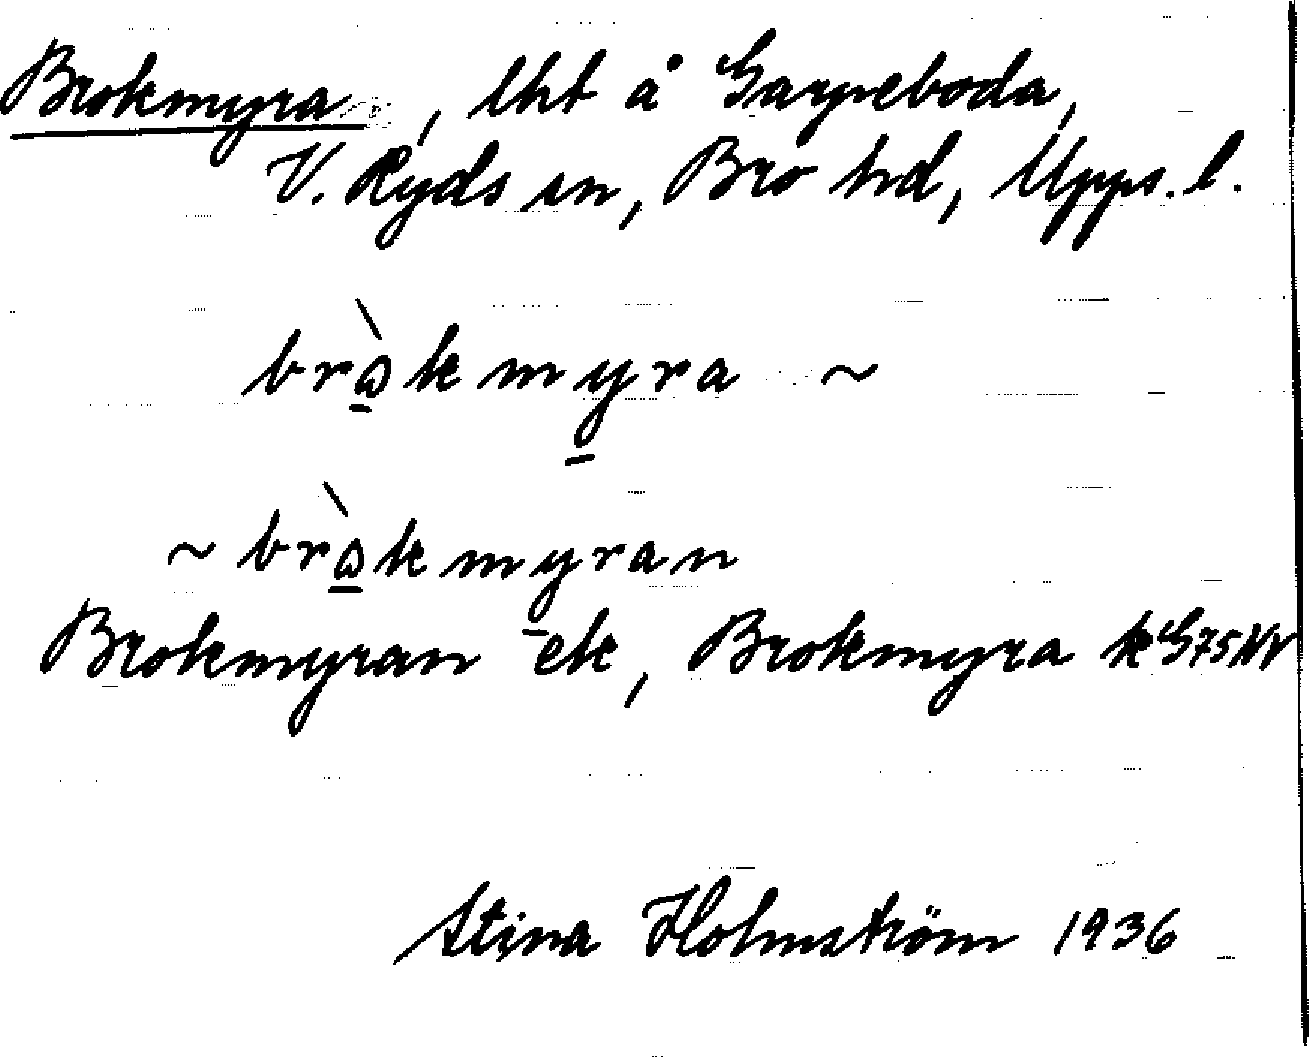 Brokmyra, lht å Garpeboda,
V. Ryds sn, Bro hd, Upps. l.
brò̱kmy̱ra ~
~ brò̱kmy̱ran
Brokmyran ek, Brokmyra k G75NV
Stina Holmström 1936